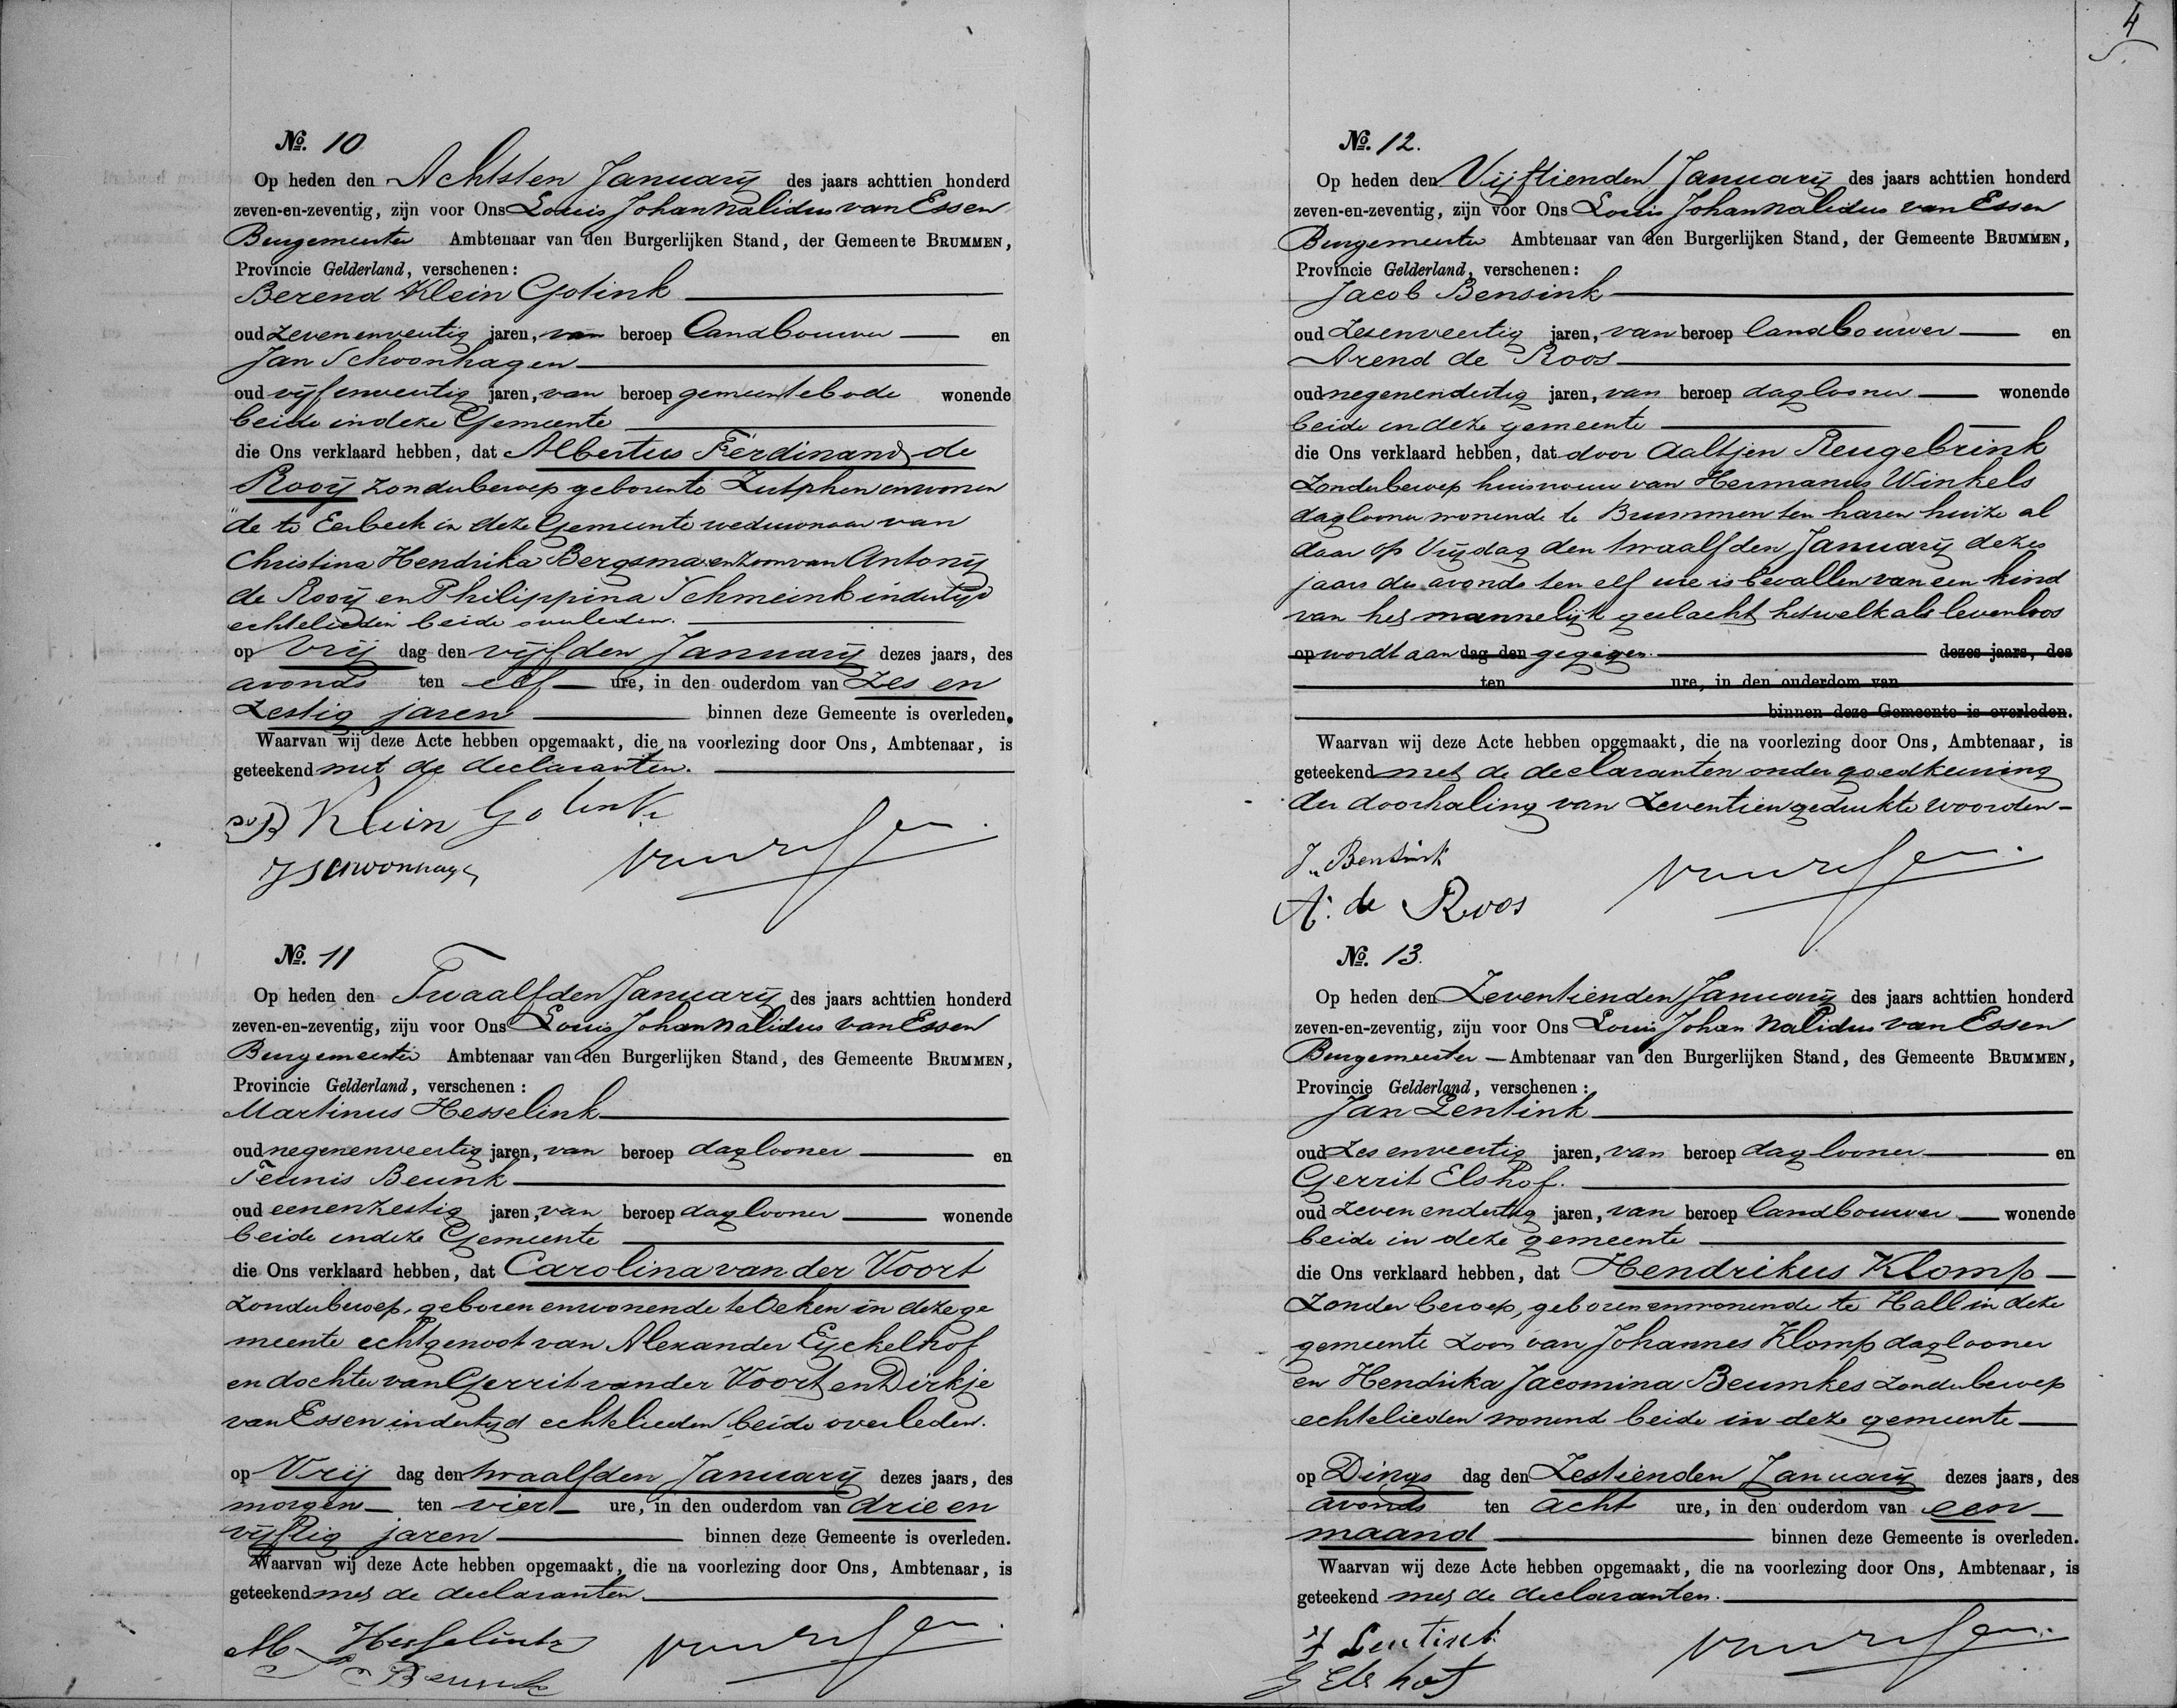 4
No. 10
Op heden den Achtsten Januarij des jaars achttien honderd
zeven-en-zeventig, zijn voor Ons Louis Johan Nalidus van Essen
Burgemeester Ambtenaar van den Burgerlijken Stand, der Gemeente BRUMMEN,
Provincie Gelderland, verschenen:
Berend Klein Gotink
oud zevenenveertig jaren, van beroep landbouwer en
Jan Schoonhagen
oud vijfenveertig jaren, van beroep gemeentebode wonende
beide in deze Gemeente
die Ons verklaard hebben, dat Albertus Ferdinand de
Rooij zonder beroep geboren te Zutphen en wonen
"de te Eerbeek in deze Gemeente weduwnaar van
Christina Hendrika Bergsma en zoon van Antonij
de Rooij en Philippina Schmeink indertijd
echtelieden beide overleden.
op Vrij dag den vijfden Januarij dezes jaars, des
avonds ten elf ure, in den ouderdom van zes en
zestig jaren binnen deze Gemeente is overleden.
Waarvan wij deze Acte hebben opgemaakt, die na voorlezing door Ons, Ambtenaar, is
geteekend met de declaranten.
B Klein Gotink
J Schoonhagen
van Essen
No. 11
Op heden den Twaalfden Januarij des jaars achttien honderd
zeven-en-zeventig, zijn voor Ons Louis Johan Nalidus van Essen
Burgemeester Ambtenaar van den Burgerlijken Stand, des Gemeente BRUMMEN,
Provincie Gelderland, verschenen:
Martinus Hesselink
oud negenenveertig jaren, van beroep daglooner en
Teunis Beunk
oud eenenzestig jaren, van beroep daglooner wonende
beide in deze Gemeente
die Ons verklaard hebben, dat Carolina van der Voort
zonder beroep, geboren en wonende te Oeken in deze ge
meente echtgenoot van Alexander Eijckelhof
en dochter van Gerrit van der Voort en Dirkje
van Essen indertijd echtelieden beide overleden.
op Vrij dag den twaalfden Januarij dezes jaars, des
morgen ten vier ure, in den ouderdom van drie en
vijftig jaren binnen deze Gemeente is overleden.
Waarvan wij deze Acte hebben opgemaakt, die na voorlezing door Ons, Ambtenaar, is
geteekend met de declaranten.
M Hesselink
T Beunk
van Essen
No. 12.
Op heden den Vijftienden Januarij des jaars achttien honderd
zeven-en-zeventig, zijn voor Ons Louis Johan Nalidus van Essen
Burgemeester Ambtenaar van den Burgerlijken Stand, der Gemeente BRUMMEN,
Provincie Gelderland, verschenen:
Jacob Bensink
oud zesenveertig jaren, van beroep landbouwer en
Arend de Roos
oud negenendertig jaren, van beroep daglooner wonende
beide in deze gemeente
die Ons verklaard hebben, dat door Aaltjen Reugebrink
zonder beroep huisvrouw van Hermanus Winkels
daglooner wonende te Brummen ten haren huize al
daar op Vrijdag den twaalfden Januarij dezes
jaars des avonds ten elf ure is bevallen van een kind
van het mannelijk geslacht hetwelk als levenloos
op wordt aan dag den gegegen. dezes jaars, des
ten ure, in den ouderdom van
binnen deze Gemeente is overleden.
Waarvan wij deze Acte hebben opgemaakt, die na voorlezing door Ons, Ambtenaar, is
geteekend met de declaranten onder goedkeuring
der doorhaling van zeventien gedrukte woorden
J. Bensink
A. de Roos
van Essen
No. 13.
Op heden den Zeventienden Januarij des jaars achttien honderd
zeven-en-zeventig, zijn voor Ons Louis Johan Nalidus van Essen
Burgemeester Ambtenaar van den Burgerlijken Stand, des Gemeente BRUMMEN,
Provincie Gelderland, verschenen:
Jan Lentink
oud zesenveertig jaren, van beroep daglooner en
Gerrit Elshof.
oud zevenendertig jaren, van beroep landbouwer wonende
beide in deze gemeente
die Ons verklaard hebben, dat Hendrikus Klomp
zonder beroep, geboren en wonende te Hall in deze
gemeente zoon van Johannes Klomp daglooner
en Hendrika Jacomina Beumkes zonder beroep
echtelieden wonend beide in deze gemeente
op Dings dag den Zestienden Januarij dezes jaars, des
avonds ten acht ure, in den ouderdom van een
maand binnen deze Gemeente is overleden.
Waarvan wij deze Acte hebben opgemaakt, die na voorlezing door Ons, Ambtenaar, is
geteekend met de declaranten.
J Lentink
G Elshof
van Essen